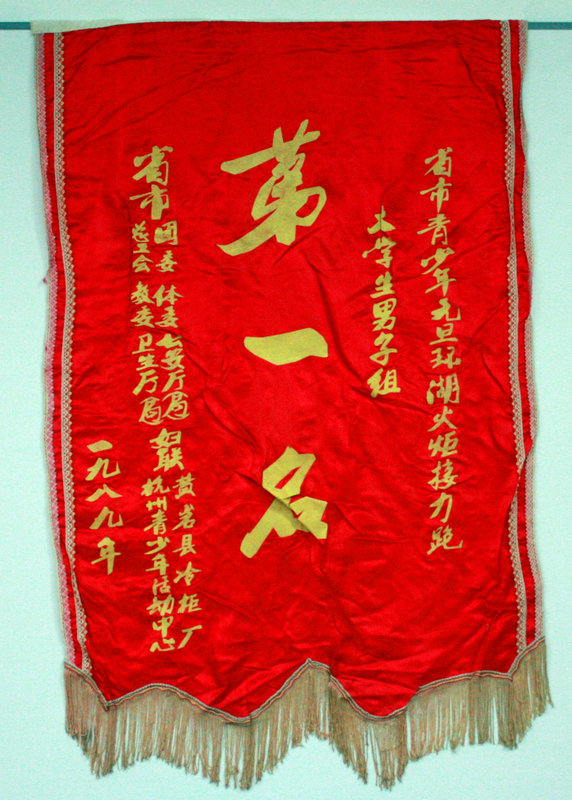 省市青少年元旦环湖火炬接力跑
大学生男子组
第一名
省市 团委 体委 公安厅局 妇联 黄岩县冷柜厂
总工会 教委 卫生厅局 杭州青少年活动中心
一九八九年